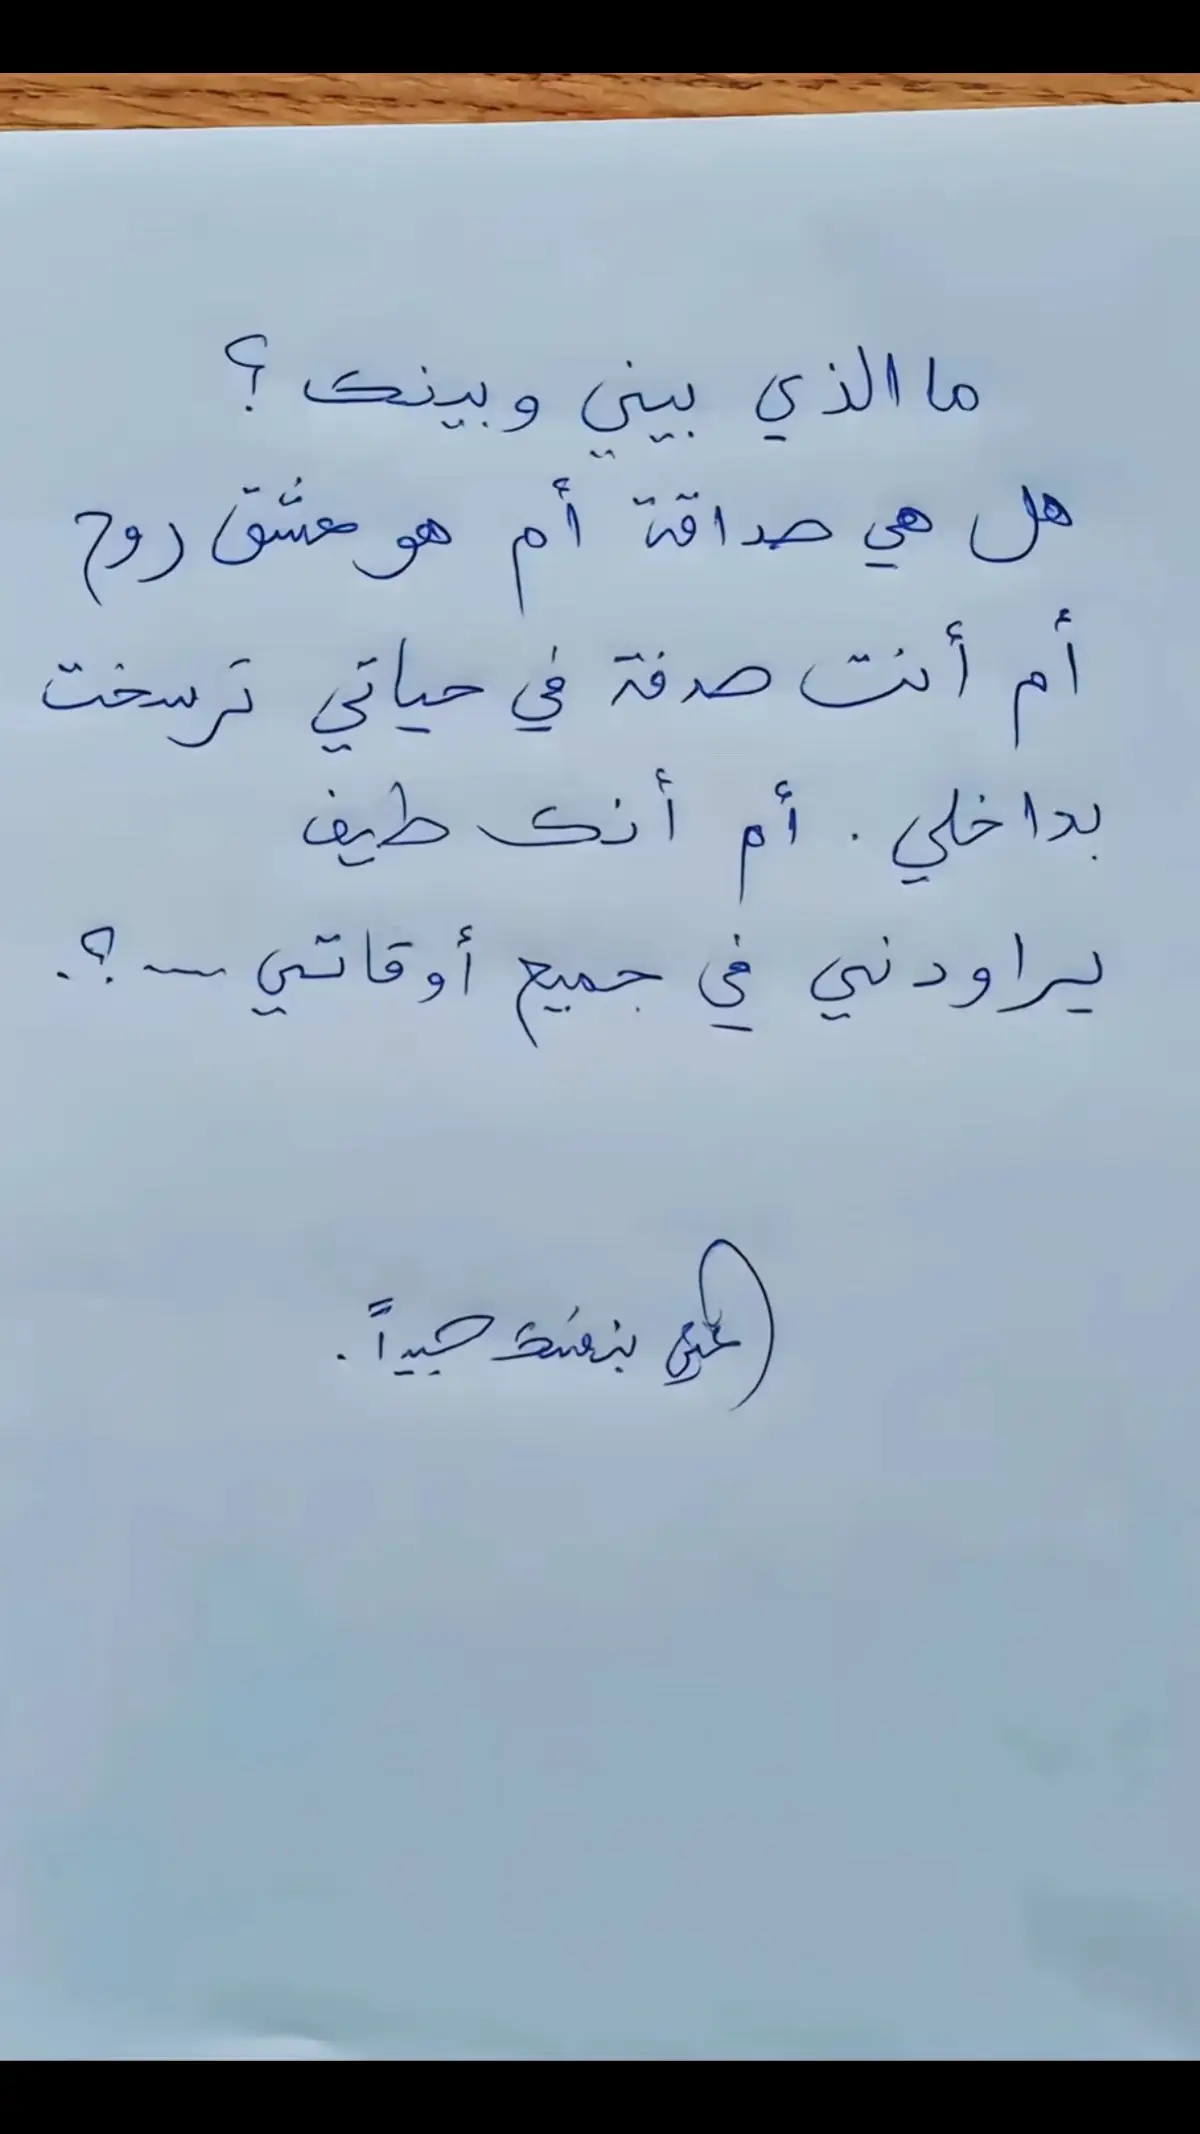 ما الذي بيني وبينك ؟
هل هي صداقة أم هو عشق روح
أم أنت صدفة في حياتي ترسخت
بداخلي . أم أنك طيف
يراودني في جميع أوقاتي ؟.
جيداً .